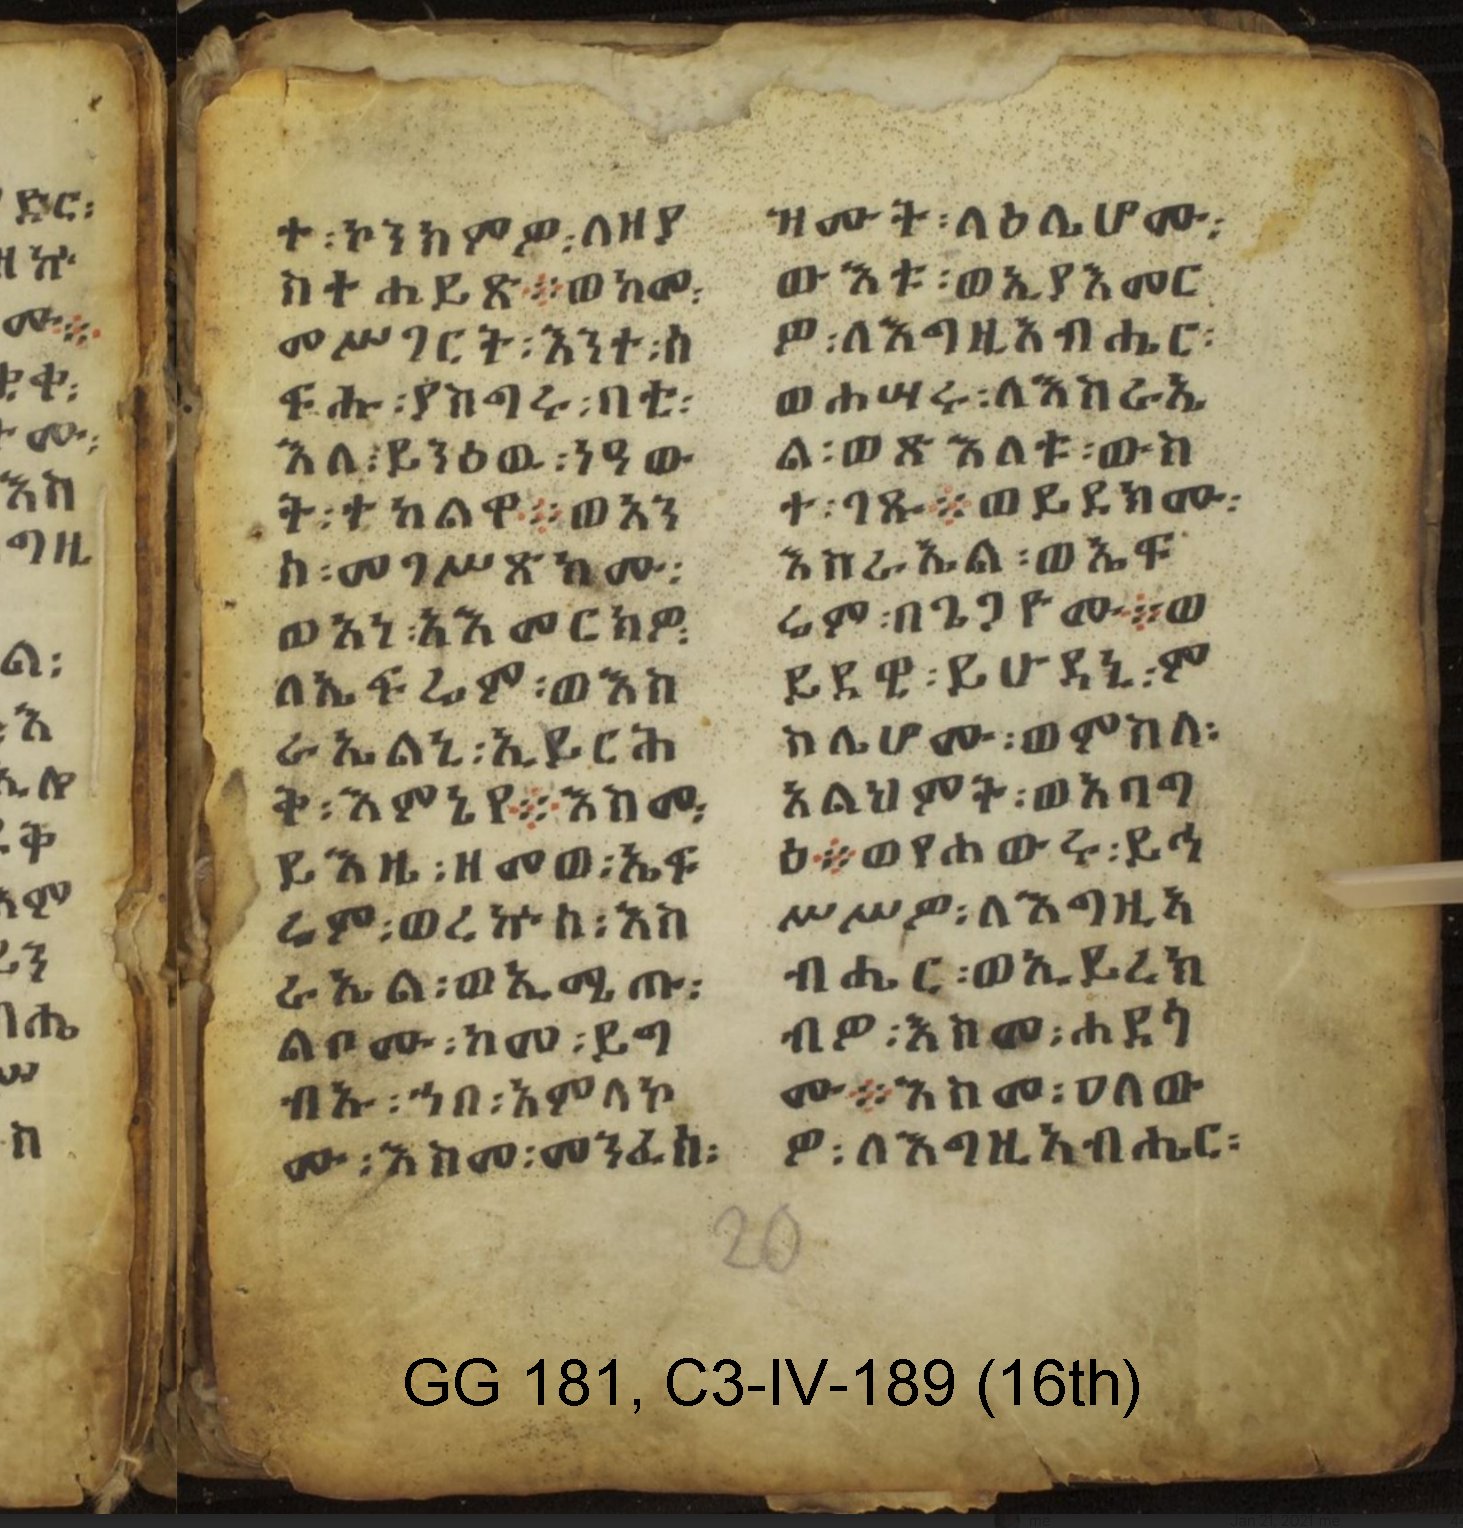 ድር፡
ዝኵ
ሙ፡፡
ቂቀ፡
ሙ፡
እስ
ግዚ
ል፡
፡እ
ቅ
አም
ይን
ብሔ
ስ
ተ፡ኮንክምዎ፡ለዘያ
ስተሐይጽ፨ወከመ፡
መሥገርት፡እንተ፡ስ
ፍሕ፡ያስግሩ፡በቲ፡
እለ፡ይንዕዉ፡ነዓው
ት፡ተከልዋ፨ወአን
ሰ፡መገሥጽክሙ፡
ወአነ፡አእመርክዎ፡
ለኤፍሬም፡ወእስ
ራኤልኒ፡ኢይርሕ
ቅ፡እምኔየ፨እስመ፡
ይእዜ፡ዘመወ፡ኤፍ
ሬም፡ወረኵሰ፡እስ
ራኤል፡ወኢሜጡ፡
ልቦሙ፡ከመ፡ይግ
ብኡ፡ኀበ፡አምላኮ
ሙ፡እስመ፡መንፈሰ፡
ዝሙት፡ላዕሌሆሙ፡
ውእቱ፡ወኢያእመር
ዎ፡ለእግዚአብሔር፡
ወሐሣሩ፡ለእስራኤ
ል፡ወጽእለቱ፡ውስ
ተ፡ገጹ፨ወይደክሙ፡
እስራኤል፡ወኤፍ
ሬም፡በጌጋዮሙ፨ወ
ይደዊ፡ይሁዳኒ፡ም
ስሌሆሙ፡ወምስለ፡
አልህምት፡ወአባግ
ዕ፨ወየሐውሩ፡ይኀ
ሥሥዎ፡ለእግዚአ
ብሔር፡ወኢይረክ
ብዎ፡እስመ፡ሐደጎ
ሙ፨እስመ፡ዐለው
ዎ፡ለእግዚአብሔር፡
20
GG 181, C3-IV-189 (16th)